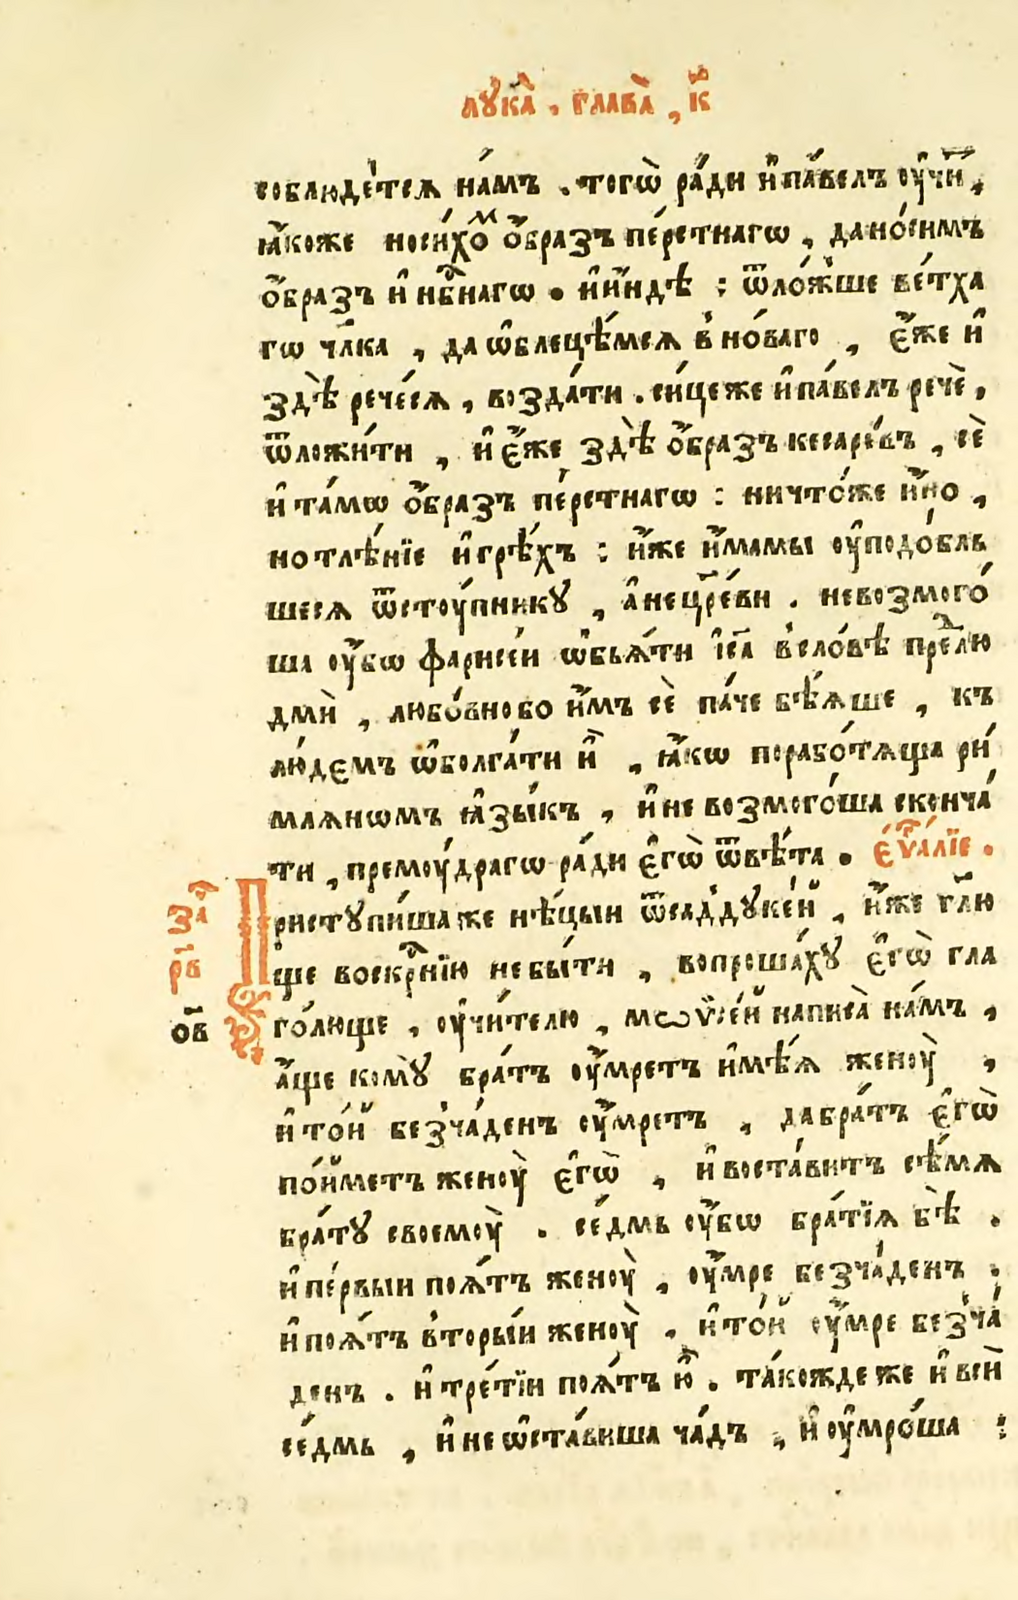 лꙋка̀ . глава̀ , к҃
соблюде́тсѧ на́мъ . тогѡ̀ ра́ди и҆па́велъ оу҆чи́ ,
ꙗ҆́коже носи́хоⷨ о҆́бразъ пе́рстнагѡ , дано́симъ
о҆́бразъ и҆ нб҃нагѡ . и҆и҆́ндѣ : ѿло́жше ве́тха
гѡ чл҃ка , да ѡ҆блеце́мсѧ в но́ваго , є҆́же и҆
здѣ̀ рече́сѧ , возда́ти . си́цеже и҆па́велъ речѐ ,
ѿложи́ти , и҆ є҆́же здѣ̀ о҆́бразъ кесаре́въ , сѐ
и҆ та́мѡ о҆́бразъ пе́рстнагѡ : ничто́же и҆́но ,
но тлѣ́нїе и҆грѣ́хъ : и҆́же и҆́мамы оу҆подо́бль
шесѧ ѿстоу́пникꙋ , а҆нецр҃е́ви . невозмого́
ша оу҆́бѡ фарисе́и ѡ҆бьѧ́ти і҆с҃а в сло́вѣ преⷣлю
дмѝ , любо́вно бо и҆́мъ сѐ па́че бѣ́ѧше , къ
лю́демъ ѡ҆болга́ти и҆̀ , ꙗ҆́кѡ порабо́тѧща ри́
млѧнѡмъ ꙗ҆зы́къ , и҆ не возмого́ша сконча́
ти , премоу́драгѡ ра́ди є҆гѡ̀ ѿвѣ́та . є҆ѵⷢ҇а́лїе .
Пристꙋпи́ша же нѣ́цыи ѿсаддꙋке́й , и҆́же гл҃ю
ще воскрⷭ҇нїю не бы́ти , вопроша́хꙋ є҆гѡ̀ гла
го́люще , оу҆чи́телю , мѡѷсе́й написа̀ на́мъ ,
а҆́ще комꙋ̀ бра́тъ оу҆́мретъ и҆мѣ́ѧ женоу̀ ,
и҆ то́й безча́денъ оу҆́мретъ , да бра́тъ є҆гѡ̀
по́йметъ женоу̀ є҆гѡ̀ , и҆ воста́витъ сѣ́мѧ
бра́тꙋ своемоу̀ . се́дмь оу҆́бѡ бра́тїѧ бѣ̀ .
и҆ пе́рвыи поѧ́тъ женоу̀ , оу҆́мре безча́денъ .
и҆ поѧ́тъ вторы́и женоу̀ , и҆ то́й оу҆́мре безча́
денъ . и҆ тре́тїи поѧ́тъ ю҆̀ . та́кожде же и҆ всѝ
се́дмь , и҆ не ѡ҆ста́виша ча́дъ , и҆ оу҆мро́ша :
заⷱ҇
р҃в
о҃в